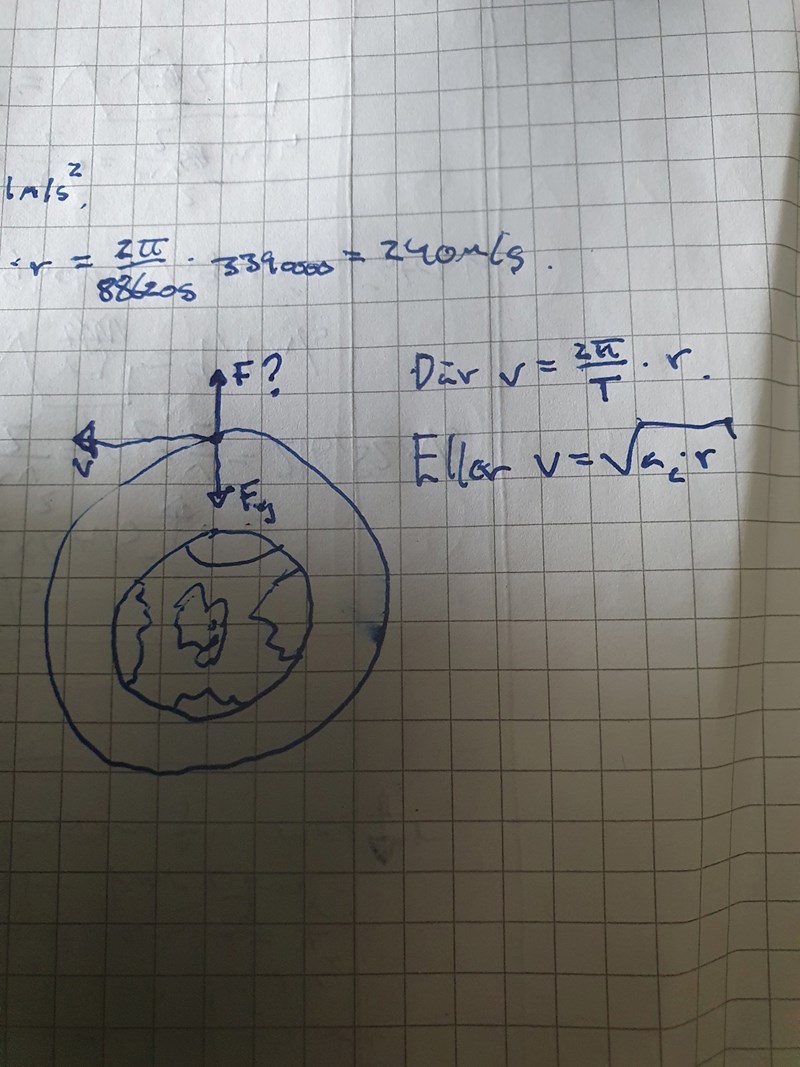 1m/s².
· r = 2π/88620s · 3390000 = 240m/s.
F?
Där v = 2π/T · r.
v
Eller v = √(a_c · r)
Fg